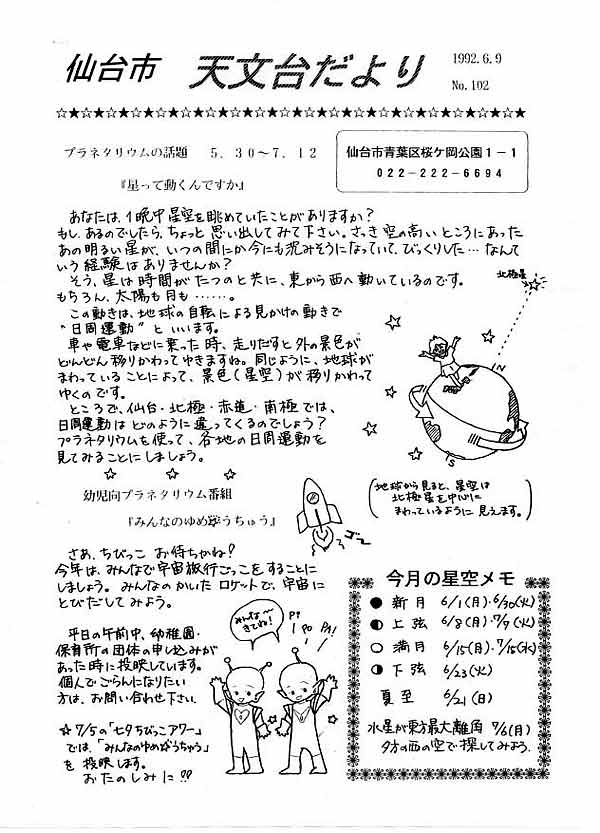 仙台市 天文台だより
1992.6.9
No.102
☆★☆★☆★☆★☆★☆★☆★☆★☆★☆★☆★☆★☆★☆★☆★☆★☆★☆★☆★☆
プラネタリウムの話題 5.30〜7.12
『星って動くんですか』
仙台市青葉区桜ケ岡公園1-1
022-222-6694
あなたは、1晩中星空を眺めていたことがありますか？
もし、あるのでしたら、ちょっと思い出してみて下さい。さっき空の高いところにあった
あの明るい星が、いつの間にか今にも沈みそうになっていて、びっくりした…なんて
いう経験はありませんか？
そう、星は時間がたつのと共に、東から西へ動いているのです。
もちろん、太陽も月も……。
この動きは、地球の自転による見かけの動きで
“日周運動”といいます。
車や電車などに乗った時、走りだすと外の景色が
どんどん移りかわってゆきますね。同じように、地球が
まわっていることによって、景色(星空)が移りかわって
ゆくのです。
ところで、仙台・北極・赤道・南極では、
日周運動はどのように違ってくるのでしょう？
プラネタリウムを使って、各地の日周運動を
見てみることにしましょう。
北極星
N
S
(地球から見ると、星空は
北極星を中心に
まわっているように見えます。)
☆ ☆ ☆
幼児向プラネタリウム番組
『みんなのゆめ号うちゅう』
さあ、ちびっこお待ちかね！
今年は、みんなで宇宙旅行ごっこをすることに
しましょう。みんなのかいたロケットで、宇宙に
とびだしてみよう。
ゴーッ
平日の午前中、幼稚園・
保育所の団体の申し込みが
あった時に投映しています。
個人でごらんになりたい
方は、お問い合わせ下さい。
☆7/5の「七夕ちびっこアワー」
では、「みんなのゆめ号うちゅう」
を投映します。
おたのしみに!!
みんな〜
きてね！
PI
PO PA!
今月の星空メモ
● 新月 6/1(月)・6/30(火)
上弦 6/8(月)・7/7(火)
○ 満月 6/15(月)・7/15(水)
下弦 6/23(火)
夏至 6/21(日)
水星が東方最大離角 7/6(月)
夕方の西の空で探してみよう。